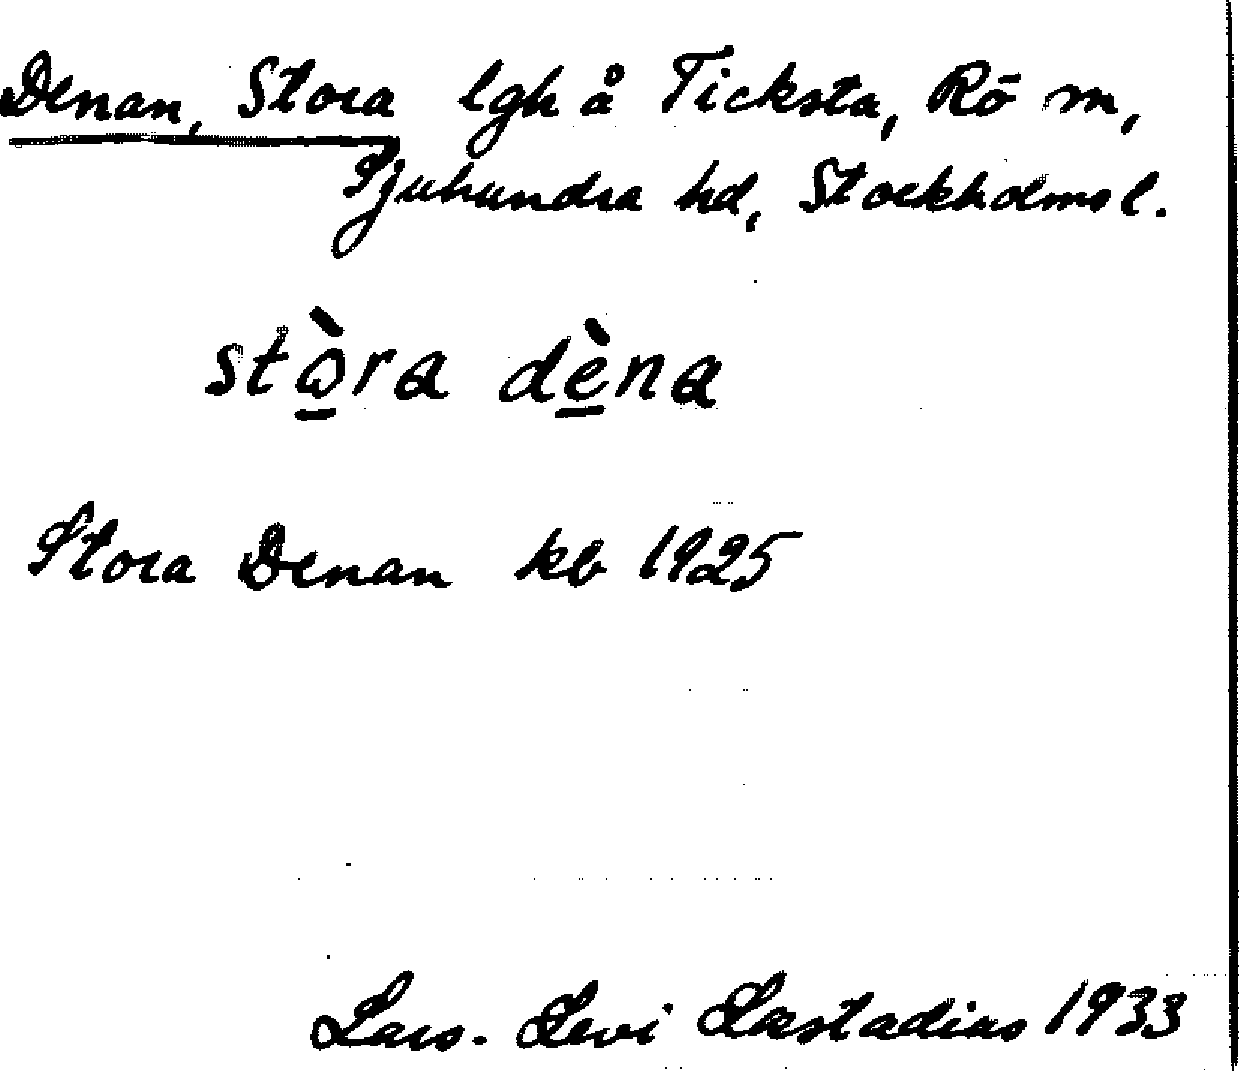 Denan, Stora lgh å Ticksta, Rö m,
Sjuhundra hd, Stockholms l.
stò̱ra dè̱na
Stora Denan kb 1925
Lars-Levi Læstadius 1933